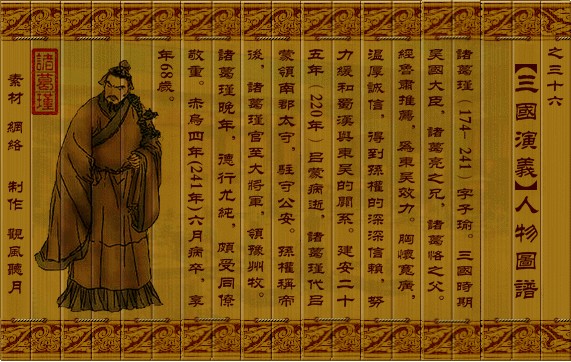 之三十六
【三國演義】人物圖譜
諸葛瑾（174—241）字子瑜。三國時期
吴國大臣，諸葛亮之兄，諸葛恪之父。
經魯肅推薦，爲東吴效力。胸懷寬廣，
温厚誠信，得到孫權的深深信賴，努
力緩和蜀漢與東吴的關系。建安二十
五年（220年）吕蒙病逝，諸葛瑾代吕
蒙領南郡太守，駐守公安。孫權稱帝
後，諸葛瑾官至大將軍，領豫州牧。
諸葛瑾晚年，德行尤純，頗受同僚
敬重。赤烏四年(241年)六月病卒，享
年68歲。
諸葛瑾
素材 網絡 制作 觀風聽月